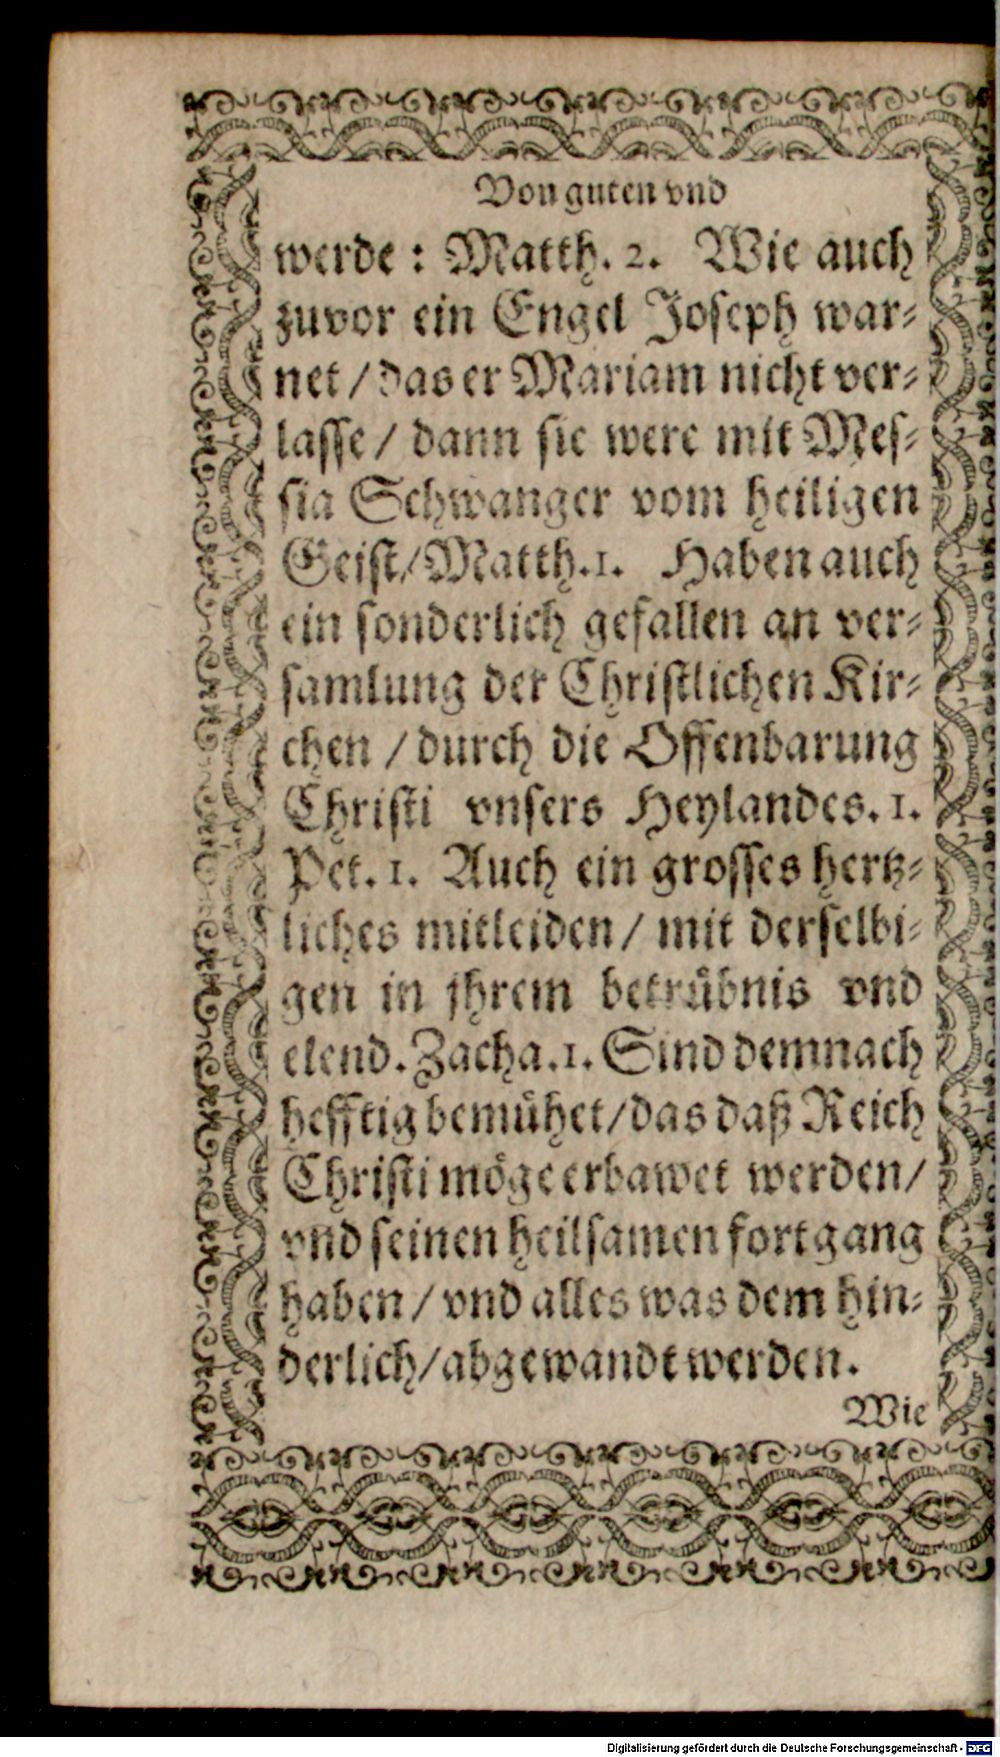 Von guten vnd
werde : Matth. 2. Wie auch
zuvor ein Engel Joseph war-
net / das er Mariam nicht ver-
lasse / dann sie were mit Mes-
sia Schwanger vom heiligen
Geist / Matth. 1. Haben auch
ein sonderlich gefallen an ver-
samlung der Christlichen Kir-
chen / durch die Offenbarung
Christi vnsers Heylandes. 1.
Pet. 1. Auch ein grosses hertz-
liches mitleiden / mit derselbi-
gen in jhrem betrübnis vnd
elend. Zacha. 1. Sind demnach
hefftig bemühet / das daß Reich
Christi möge erbawet werden /
vnd seinen heilsamen fortgang
haben / vnd alles was dem hin-
derlich / abgewandt werden.
Wie
Digitalisierung gefördert durch die Deutsche Forschungsgemeinschaft - DFG